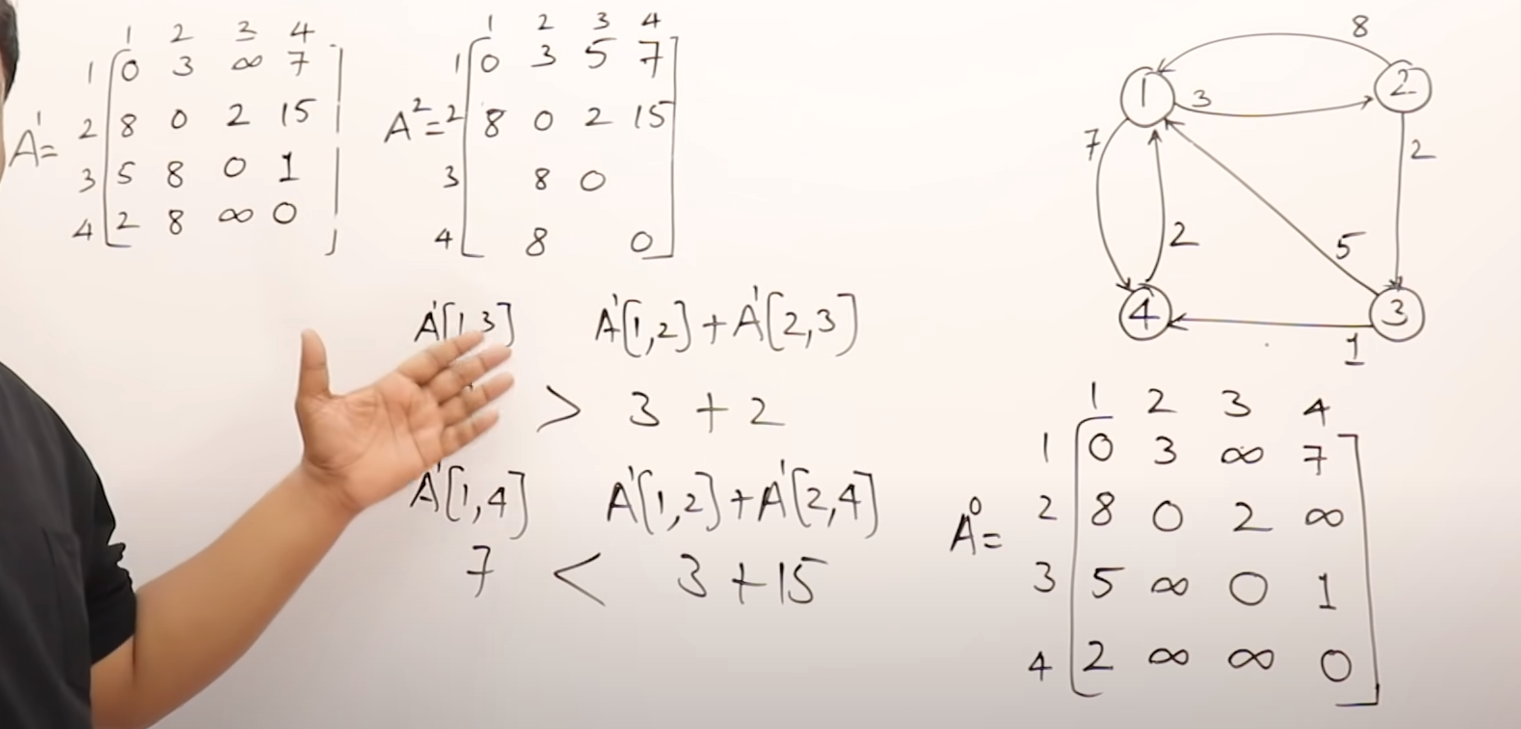 1 2 3 4
A¹=
1 0 3 ∞ 7
2 8 0 2 15
3 5 8 0 1
4 2 8 ∞ 0
1 2 3 4
A²=
1 0 3 5 7
2 8 0 2 15
3 8 0
4 8 0
A¹[1,3] A¹[1,2]+A¹[2,3]
> 3+2
A¹[1,4] A¹[1,2]+A¹[2,4]
7 < 3+15
8
1 3 2
7 2
2 5
4 3
1
1 2 3 4
A⁰=
1 0 3 ∞ 7
2 8 0 2 ∞
3 5 ∞ 0 1
4 2 ∞ ∞ 0